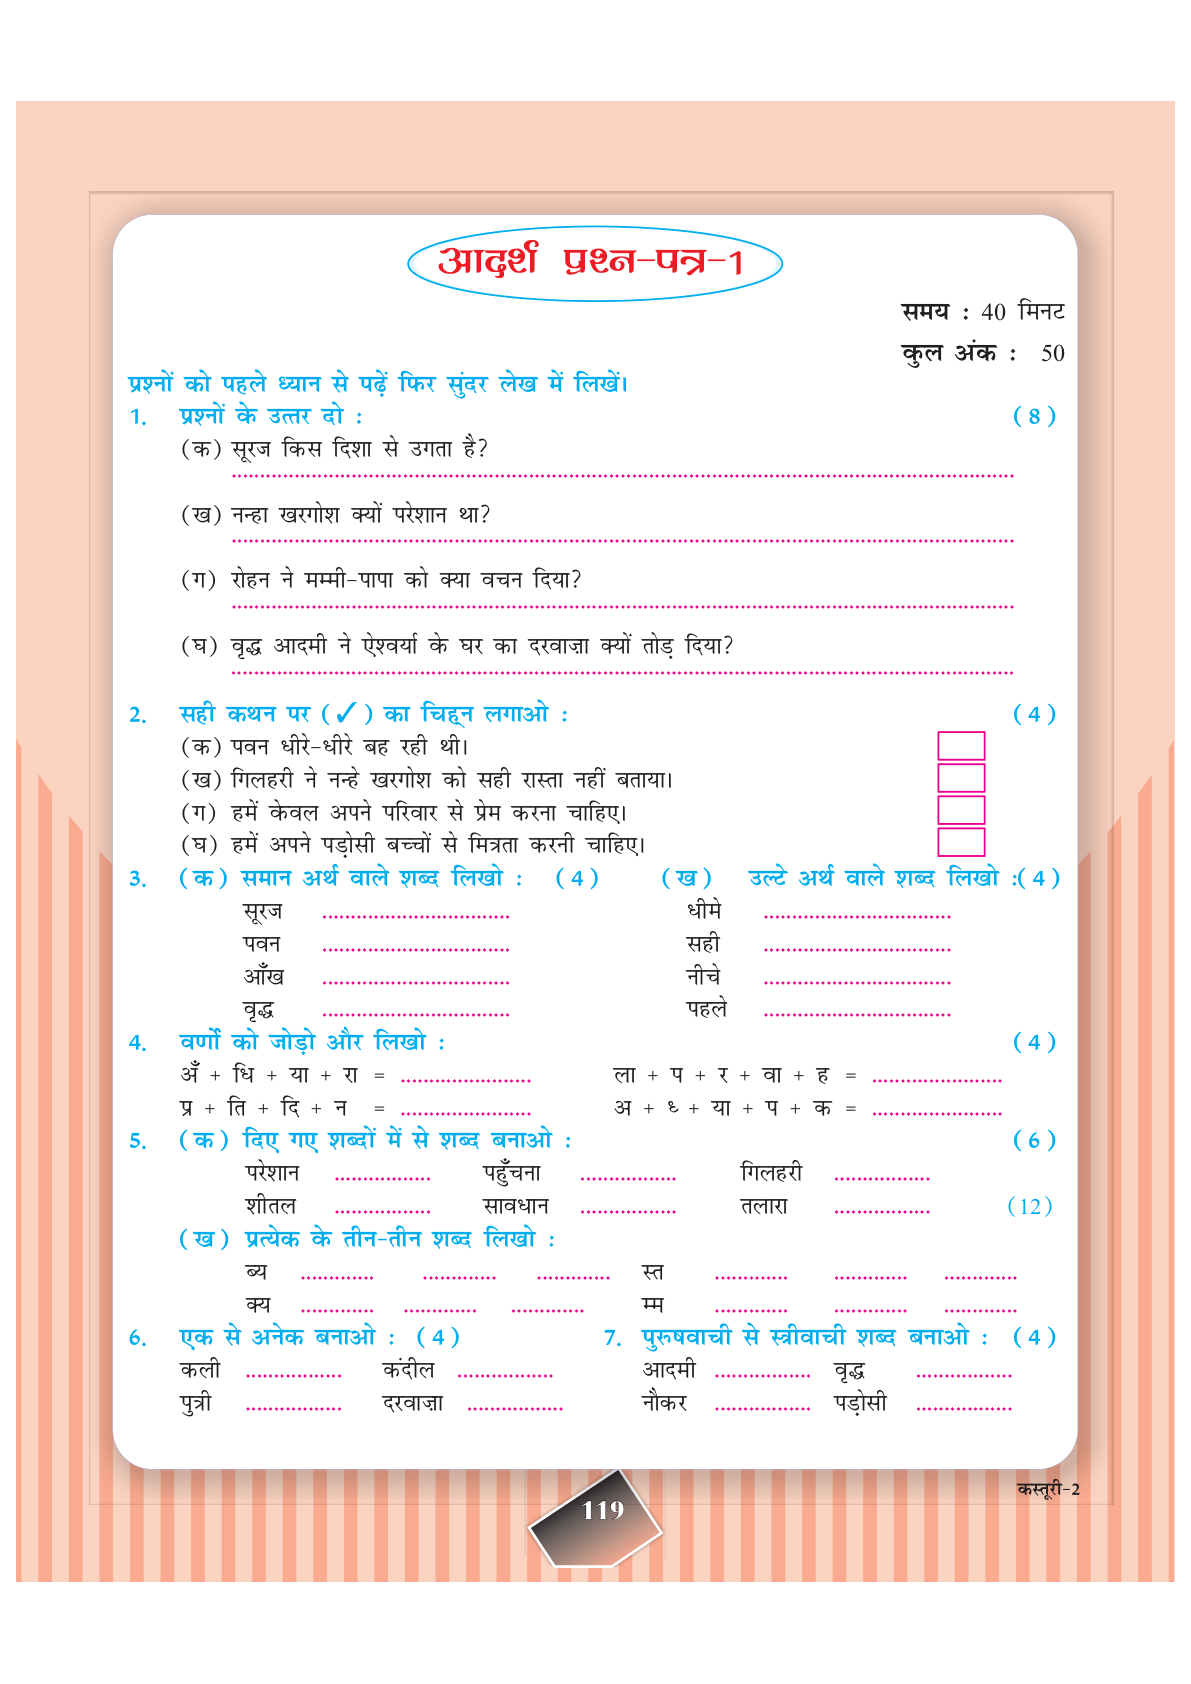 आदर्श प्रश्न-पत्र-1
समय : 40 मिनट
कुल अंक : 50
प्रश्नों को पहले ध्यान से पढ़ें फिर सुंदर लेख में लिखें।
1. प्रश्नों के उत्तर दो : (8)
(क) सूरज किस दिशा से उगता है?
(ख) नन्हा खरगोश क्यों परेशान था?
(ग) रोहन ने मम्मी-पापा को क्या वचन दिया?
(घ) वृद्ध आदमी ने ऐश्वर्या के घर का दरवाज़ा क्यों तोड़ दिया?
2. सही कथन पर (✓) का चिह्न लगाओ : (4)
(क) पवन धीरे-धीरे बह रही थी।
(ख) गिलहरी ने नन्हे खरगोश को सही रास्ता नहीं बताया।
(ग) हमें केवल अपने परिवार से प्रेम करना चाहिए।
(घ) हमें अपने पड़ोसी बच्चों से मित्रता करनी चाहिए।
3. (क) समान अर्थ वाले शब्द लिखो : (4) (ख) उल्टे अर्थ वाले शब्द लिखो :(4)
सूरज ................................. धीमे .................................
पवन ................................. सही .................................
आँख ................................. नीचे .................................
वृद्ध ................................. पहले .................................
4. वर्णों को जोड़ो और लिखो : (4)
अँ + धि + या + रा = ....................... ला + प + र + वा + ह = .......................
प्र + ति + दि + न = ....................... अ + ध् + या + प + क = .......................
5. (क) दिए गए शब्दों में से शब्द बनाओ : (6)
परेशान ................. पहुँचना ................. गिलहरी .................
शीतल ................. सावधान ................. तलारा ................. (12)
(ख) प्रत्येक के तीन-तीन शब्द लिखो :
ब्य ............. ............. ............. स्त ............. ............. .............
क्य ............. ............. ............. म्म ............. ............. .............
6. एक से अनेक बनाओ : (4) 7. पुरुषवाची से स्त्रीवाची शब्द बनाओ : (4)
कली ................. कंदील ................. आदमी ................. वृद्ध .................
पुत्री ................. दरवाज़ा ................. नौकर ................. पड़ोसी .................
कस्तूरी-2
119